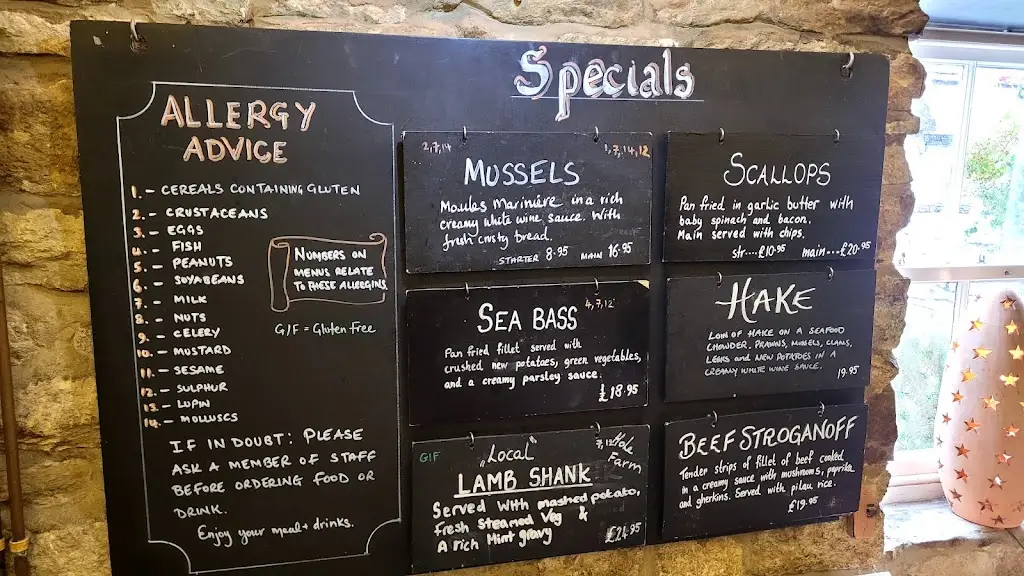 Specials
ALLERGY
ADVICE
1. - CEREALS CONTAINING GLUTEN
2. - CRUSTACEANS
3. - EGGS
4. - FISH
5. - PEANUTS
6. - SOYABEANS
7. - MILK
8. - NUTS
9. - CELERY
10. - MUSTARD
11. - SESAME
12. - SULPHUR
13. - LUPIN
14. - MOLLUSCS
NUMBERS ON
MENUS RELATE
TO THESE ALLERGINS.
G/F = Gluten Free
IF IN DOUBT: PLEASE
ASK A MEMBER OF STAFF
BEFORE ORDERING FOOD OR
DRINK.
Enjoy your meal + drinks.
2,7,14
1,7,14,12
MUSSELS
Moules Marinière in a rich
creamy white wine sauce. With
fresh crusty bread.
STARTER 8.95 MAIN 16.95
SCALLOPS
Pan fried in garlic butter with
baby spinach and bacon.
Main served with chips.
str....£10.95 main...£20.95
4,7,12
SEA BASS
Pan fried fillet served with
crushed new potatoes, green vegetables,
and a creamy parsley sauce.
£18.95
HAKE
LOIN OF HAKE ON A SEAFOOD
CHOWDER, PRAWNS, MUSSELS, CLAMS,
LEEKS and NEW POTATOES IN A
CREAMY WHITE WINE SAUCE. 19.95
GIF
"Local"
7,12
Farm
LAMB SHANK
Served with mashed potato,
Fresh Steamed Veg &
A rich Mint gravy £24.95
BEEF STROGANOFF
Tender strips of fillet of beef cooked
in a creamy sauce with mushrooms, paprika
and gherkins. Served with pilau rice.
£19.95